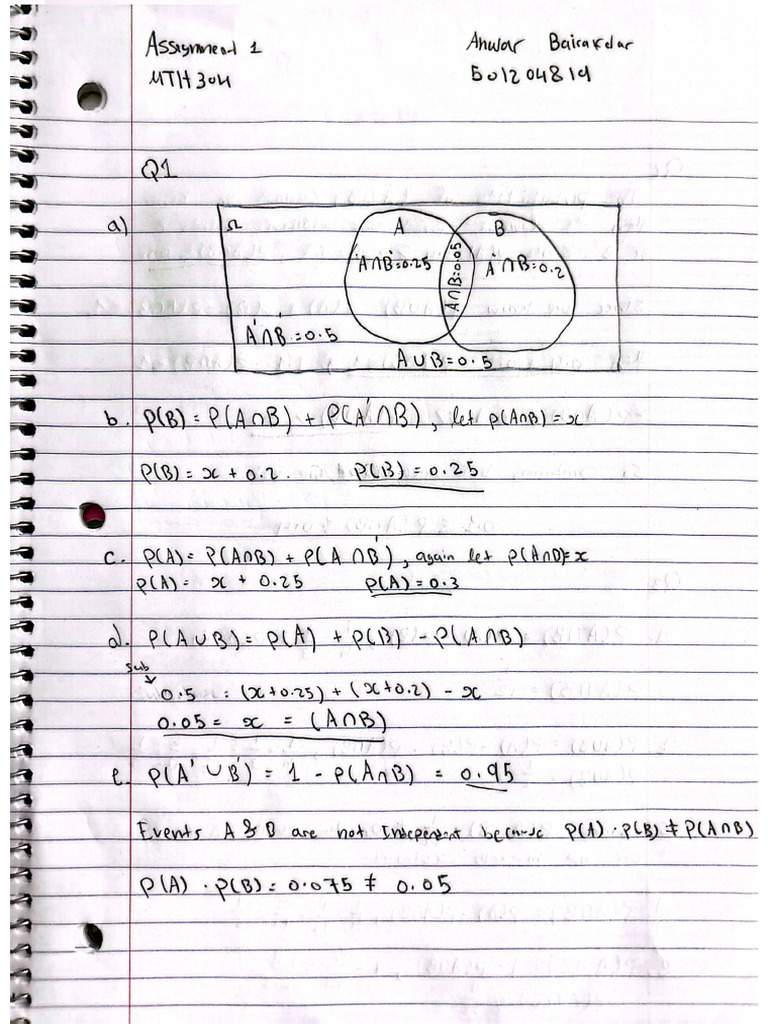 Assignment 1
Anwar Bairakdar
MTH304
501204819
Q1
a)
Ω
A
B
A∩B'=0.25
A∩B=0.05
A'∩B=0.2
A'∩B'=0.5
A∪B=0.5
b. P(B)=P(A∩B)+P(A'∩B), let P(A∩B)=x
P(B)=x+0.2. P(B)=0.25
c. P(A)=P(A∩B)+P(A∩B'), again let P(A∩B)=x
P(A)= x+0.25 P(A)=0.3
d. P(A∪B)=P(A)+P(B)-P(A∩B)
sub
0.5=(x+0.25)+(x+0.2)-x
0.05= x = (A∩B)
e. P(A'∪B')=1-P(A∩B)=0.95
Events A & B are not Independent because P(A)·P(B)≠P(A∩B)
P(A)·P(B)=0.075≠0.05